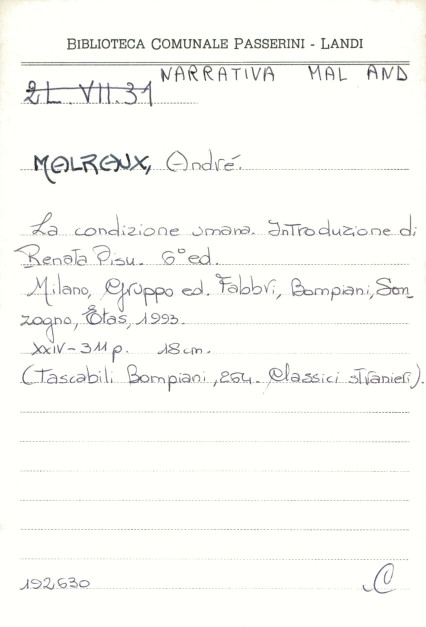 BIBLIOTECA COMUNALE PASSERINI - LANDI
NARRATIVA MAL AND
2L. VII. 31
MALRAUX, André.
La condizione umana. Introduzione di
Renata Pisu. 6° ed.
Milano, Gruppo ed. Fabbri, Bompiani, Son
zogno, Etas, 1993.
XXIV-311 p. 18 cm.
(Tascabili Bompiani, 264. Classici stranieri).
192630
C